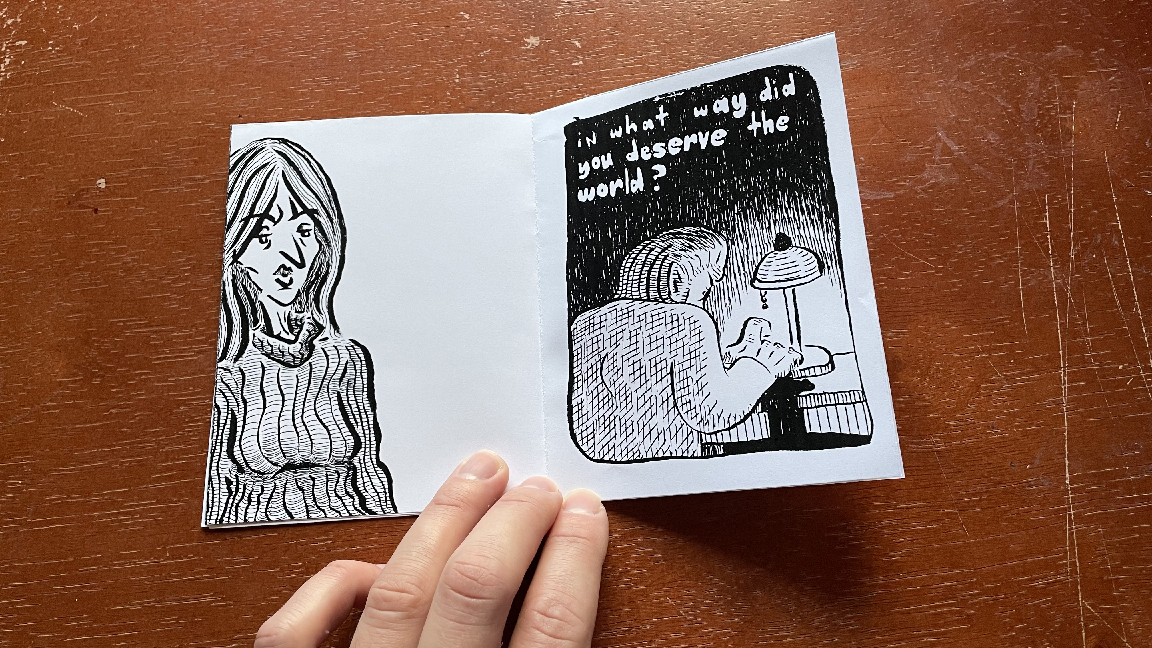 in what way did
you deserve the
world?